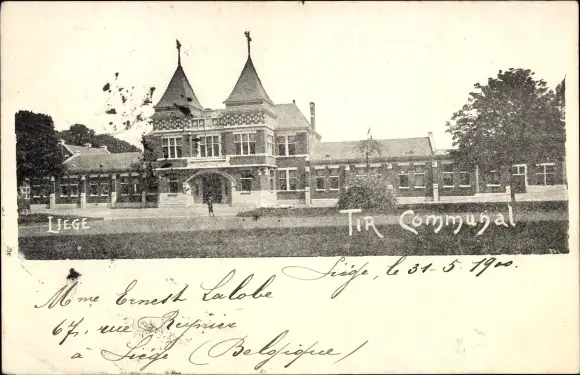 LIEGE
Tir Communal
Liége, le 31-5-1900.
Mme Ernest Lalobe
67, rue Reynier
à Liége (Belgique)